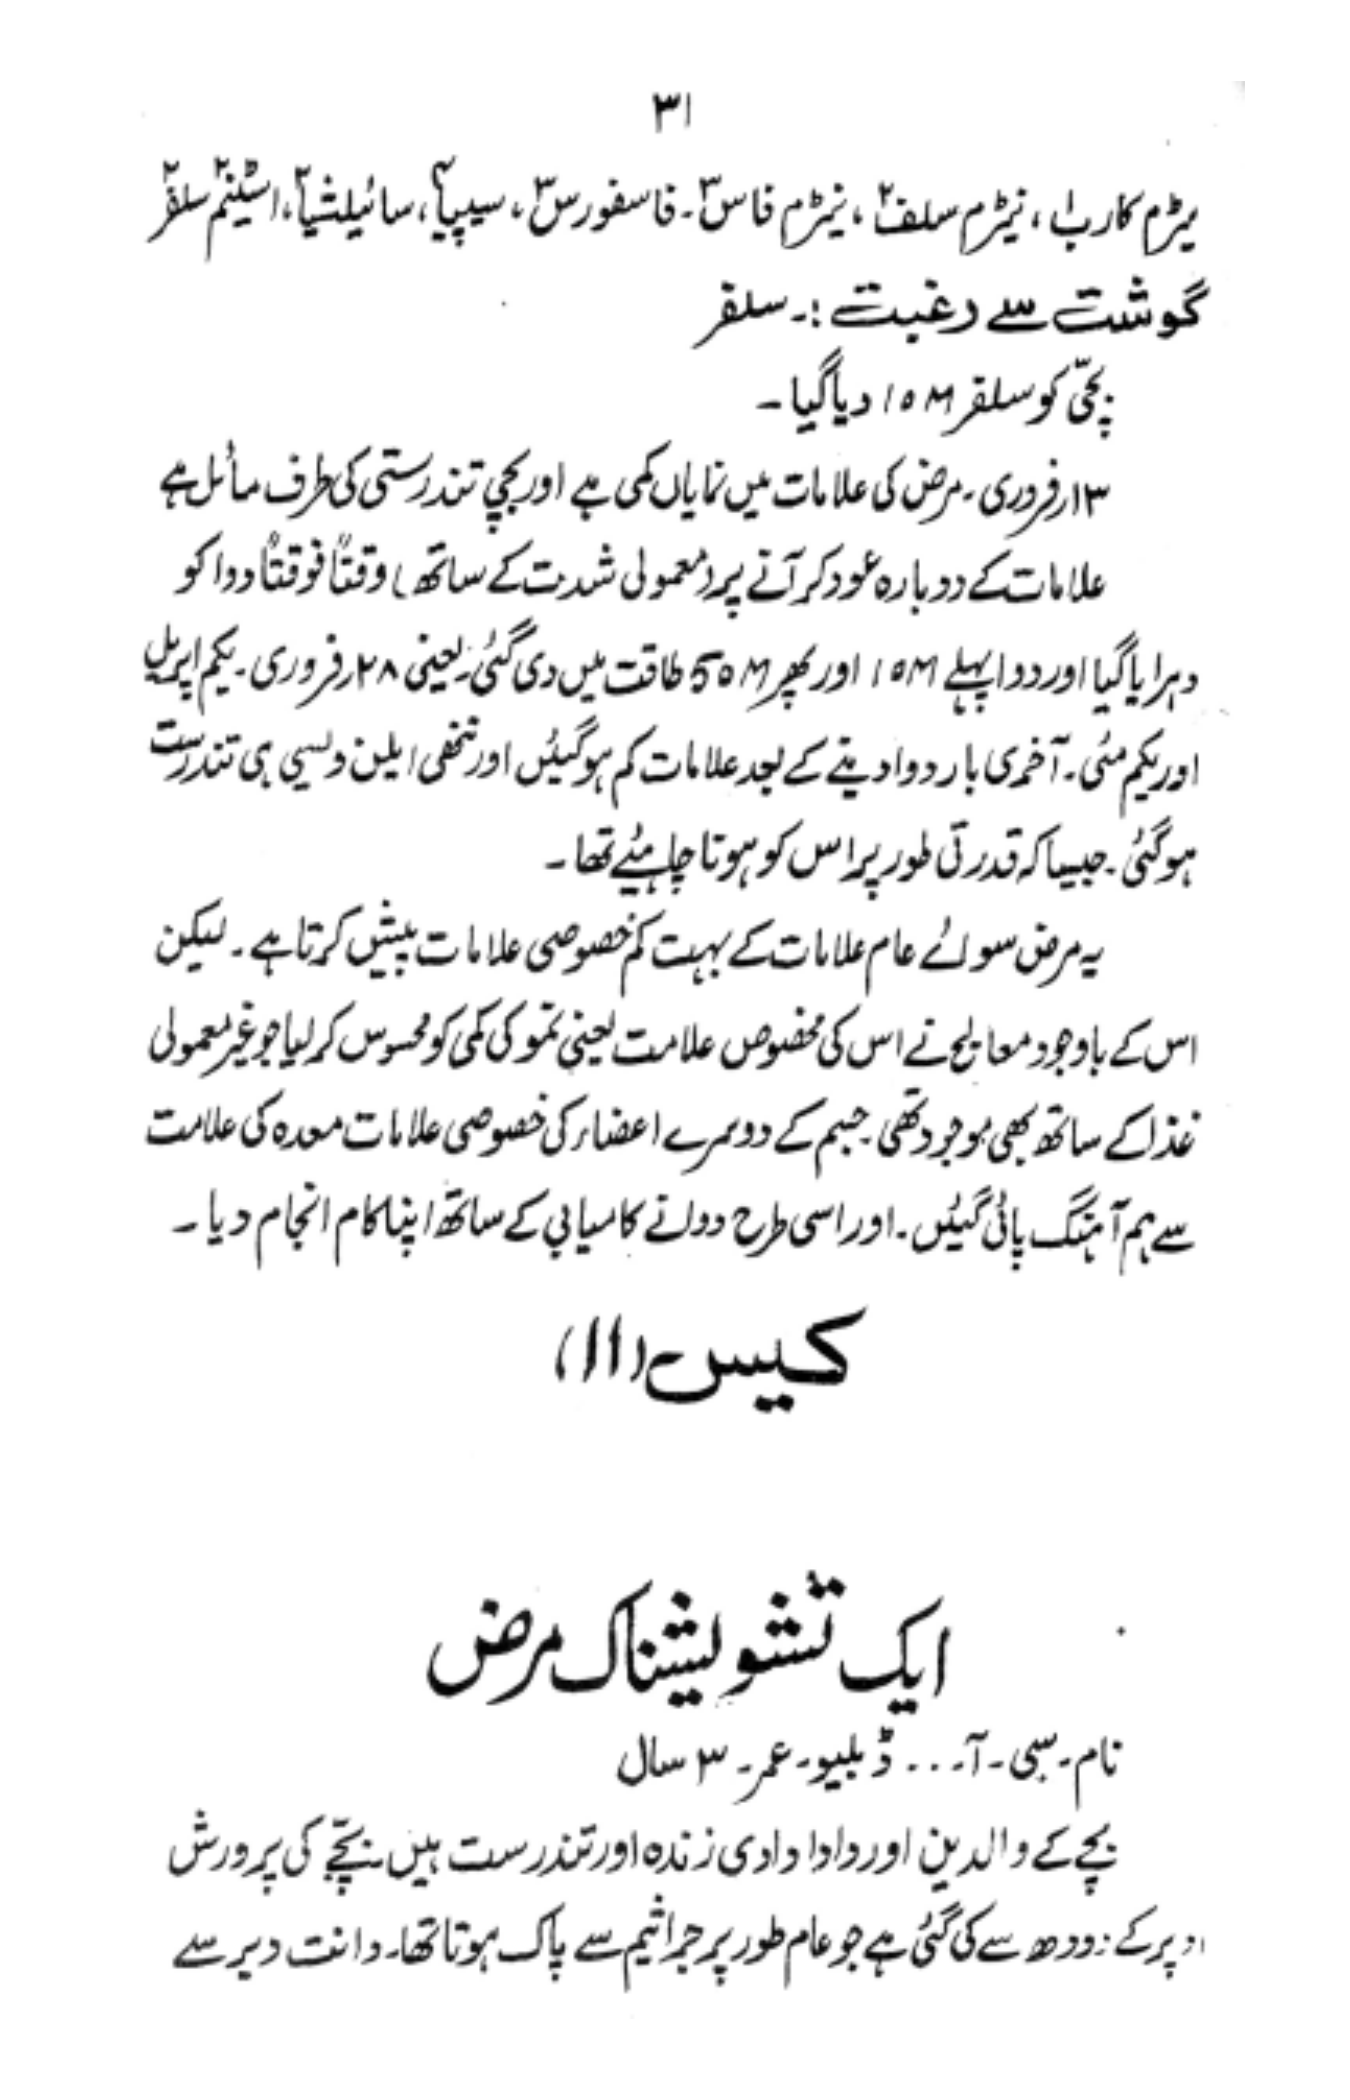 ۳۱
نیٹرم کارب۱، نیٹرم سلف۲، نیٹرم فاس۳۔ فاسفورس۳، سیپیا۲، سائیلشیا۲، اسٹینم۲ سلفر۲
گوشت سے رغبت :۔ سلفر
بچّی کو سلفر ۱۰M دیا گیا ۔
۱۳؍ فروری ۔ مرض کی علامات میں نمایاں کمی ہے اور بچی تندرستی کی طرف مائل ہے
علامات کے دوبارہ عود کر آنے پر (معمولی شدت کے ساتھ) وقتاً فوقتاً دوا کو
دہرایا گیا اور دوا پہلے ۱۰M اور پھر 50M طاقت میں دی گئی۔ یعنی ۲۸؍ فروری ۔ یکم اپریل
اور یکم مئی ۔ آخری بار دوا دینے کے بعد علامات کم ہوگئیں اور ننھی ایلن ویسی ہی تندرست
ہوگئی ۔ جیسا کہ قدرتی طور پر اس کو ہونا چاہئیے تھا ۔
یہ مرض سوائے عام علامات کے بہت کم خصوصی علامات پیش کرتا ہے ۔ لیکن
اس کے باوجود معالج نے اس کی مخصوص علامت یعنی نمو کی کمی کو محسوس کر لیا جو غیر معمولی
غذا کے ساتھ بھی موجود تھی ۔ جسم کے دوسرے اعضاء کی خصوصی علامات معدہ کی علامت
سے ہم آہنگ پائی گئیں ۔ اور اسی طرح دوا نے کامیابی کے ساتھ اپنا کام انجام دیا ۔
کیس (۱۱)
ایک تشویشناک مرض
نام ۔ سی ۔ آ ۔ . . . ڈبلیو ۔ عمر ۔ ۳ سال
بچے کے والدین اور دادا دادی زندہ اور تندرست ہیں ۔ بچّے کی پرورش
اوپر کے دودھ سے کی گئی ہے جو عام طور پر جراثیم سے پاک ہوتا تھا ۔ دانت دیر سے